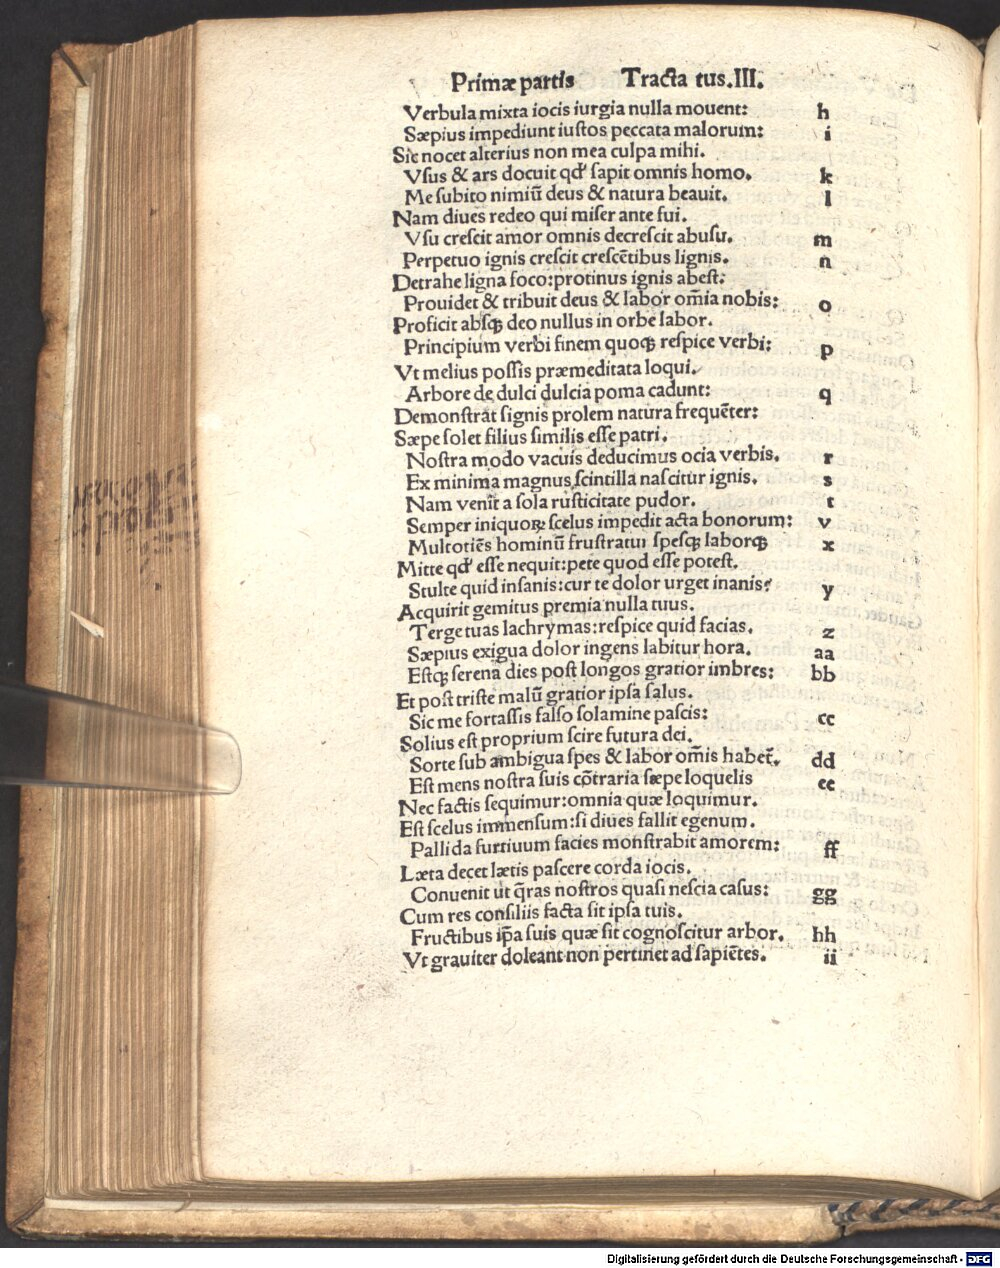 Primæ partis Tracta tus.III.
Verbula mixta iocis iurgia nulla mouent: h
Sæpius impediunt iustos peccata malorum: i
Sic nocet alterius non mea culpa mihi.
Vſus & ars docuit qđ ſapit omnis homo. k
Me ſubito nimiū deus & natura beauit. l
Nam diues redeo qui miſer ante fui.
Vſu creſcit amor omnis decreſcit abuſu. m
Perpetuo ignis creſcit creſcētibus lignis. n
Detrahe ligna foco:protinus ignis abeſt:
Prouidet & tribuit deus & labor om̄ia nobis: o
Proficit abſqꝫ deo nullus in orbe labor.
Principium verbi finem quoqꝫ reſpice verbi: p
Vt melius poſſis præmeditata loqui.
Arbore de dulci dulcia poma cadunt: q
Demonſtrāt ſignis prolem natura frequēter:
Sæpe ſolet filius ſimilis eſſe patri.
Noſtra modo vacuis deducimus ocia verbis. r
Ex minima magnus ſcintilla naſcitur ignis. s
Nam venit a ſola ruſticitate pudor. t
Semper iniquoꝝ ſcelus impedit acta bonorum: v
Multotiēs hominū fruſtratur ſpeſqꝫ laborqꝫ x
Mitte qđ eſſe nequit:pete quod eſſe poteſt.
Stulte quid inſanis:cur te dolor urget inanis? y
Acquirit gemitus premia nulla tuus.
Terge tuas lachrymas:reſpice quid facias. z
Sæpius exigua dolor ingens labitur hora. aa
Eſtqꝫ ſerena dies poſt longos gratior imbres: bb
Et poſt triſte malū gratior ipſa ſalus.
Sic me fortaſſis falſo ſolamine paſcis: cc
Solius eſt proprium ſcire futura dei.
Sorte ſub ambigua ſpes & labor om̄is habet̄. dd
Eſt mens noſtra ſuis cōtraria ſæpe loquelis ee
Nec factis ſequimur:omnia quæ loquimur.
Eſt ſcelus immenſum:ſi diues fallit egenum.
Pallida furtiuum facies monſtrabit amorem: ff
Læta decet lætis paſcere corda iocis.
Conuenit ut q̄ras noſtros quaſi neſcia caſus: gg
Cum res conſiliis facta ſit ipſa tuis.
Fructibus ip̄a ſuis quæ ſit cognoſcitur arbor. hh
Vt grauiter doleant non pertinet ad ſapiētes. ii
Digitalisierung gefördert durch die Deutsche Forschungsgemeinschaft - DFG